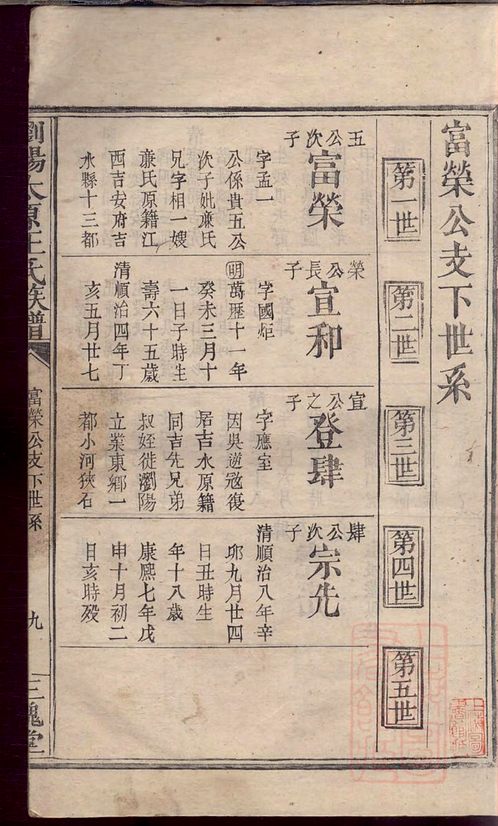 富榮公支下世系
第一世
第二世
第三世
第四世
第五世
五公次子
富榮
字孟一
公係貴五公
次子妣庶氏
兄字相一嫂
庶氏原籍江
西吉安府吉
水縣十三都
榮公長子
宣和
字國炬
明萬厯十一年
癸未三月十
一日子時生
壽六十五歲
清順治四年丁
亥五月廿七
宣公之子
登肆
字應室
因吳逆寇復
居吉水原籍
同吉先兄弟
叔姪徙瀏陽
立業東鄉一
都小河狹石
肆公次子
宗先
清順治八年辛
卯九月廿四
日丑時生
年十八歲
康熈七年戊
申十月初二
日亥時殁
瀏陽太原王氏族譜
富榮公支下世系
九
三槐堂